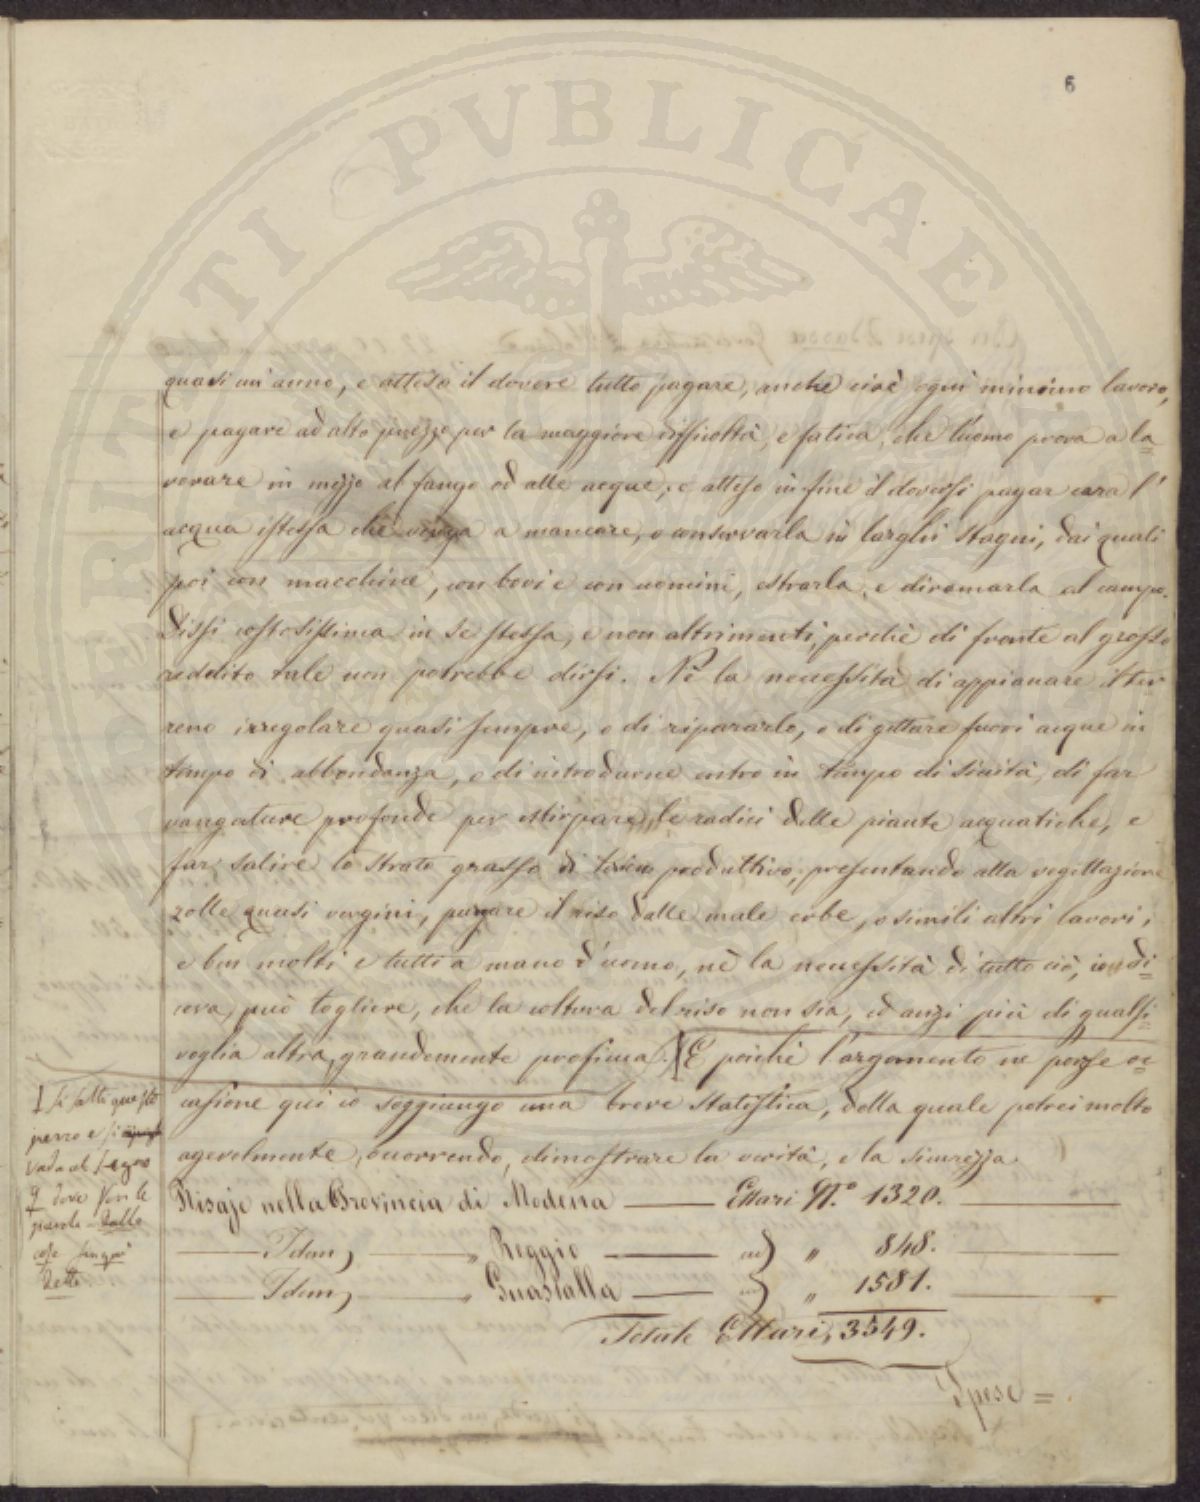 6
PVBLICAE
quasi un'anno, e atteso il dovere tutto pagare, anche cioè ogni minimo lavoro,
e pagare ad alto prezzo per la maggiore difficoltà, e fatica, che l'uomo prova a la=
vorare in mezzo al fango ed alle acque; e atteso in fine il doversi pagar cara l'
acqua istessa che venga a mancare, o conservarla in larghi stagni, dai quali
poi con macchine, con bovi e con uomini, estrarla, e diramarla al campo.
Dissi costosissima in se stessa, e non altrimenti, perchè di fronte al grosso
reddito tale non potrebbe dirsi. Nè la necessità di appianare il ter
reno irregolare quasi sempre, o di ripararlo, o di gettare fuori acque in
tempo di abbondanza, e di introdurne entro in tempo di siccità, di far
vangature profonde per estirpare le radici delle piante acquatiche, e
far salire lo strato grasso di produttivo, presentando alla vegettazione
zolle quasi vergini, purgare il riso dalle male erbe, o simili altri lavori,
e ben molti e tutti a mano d'uomo, nè la necessità di tutto ciò, io di=
ceva, può togliere, che la coltura del riso non sia, ed anzi più di qualsi=
voglia altra, grandemente proficua. E poichè l'argomento ne porse oc=
casione qui io soggiungo una breve statistica, della quale potrei molto
agevolmente, occorrendo, dimostrare la verità, e la sicurezza.
Risaje nella Provincia di Modena — Ettari N.° 1320.
Idem, „ Reggio — id „ 848.
Idem, „ Guastalla — id „ 1581.
Totale Ettari, 3549.
Spese =
si salti questo
pezzo e si
vada al segno
dove son le
parole - Dalle
cose sin qui
dette.